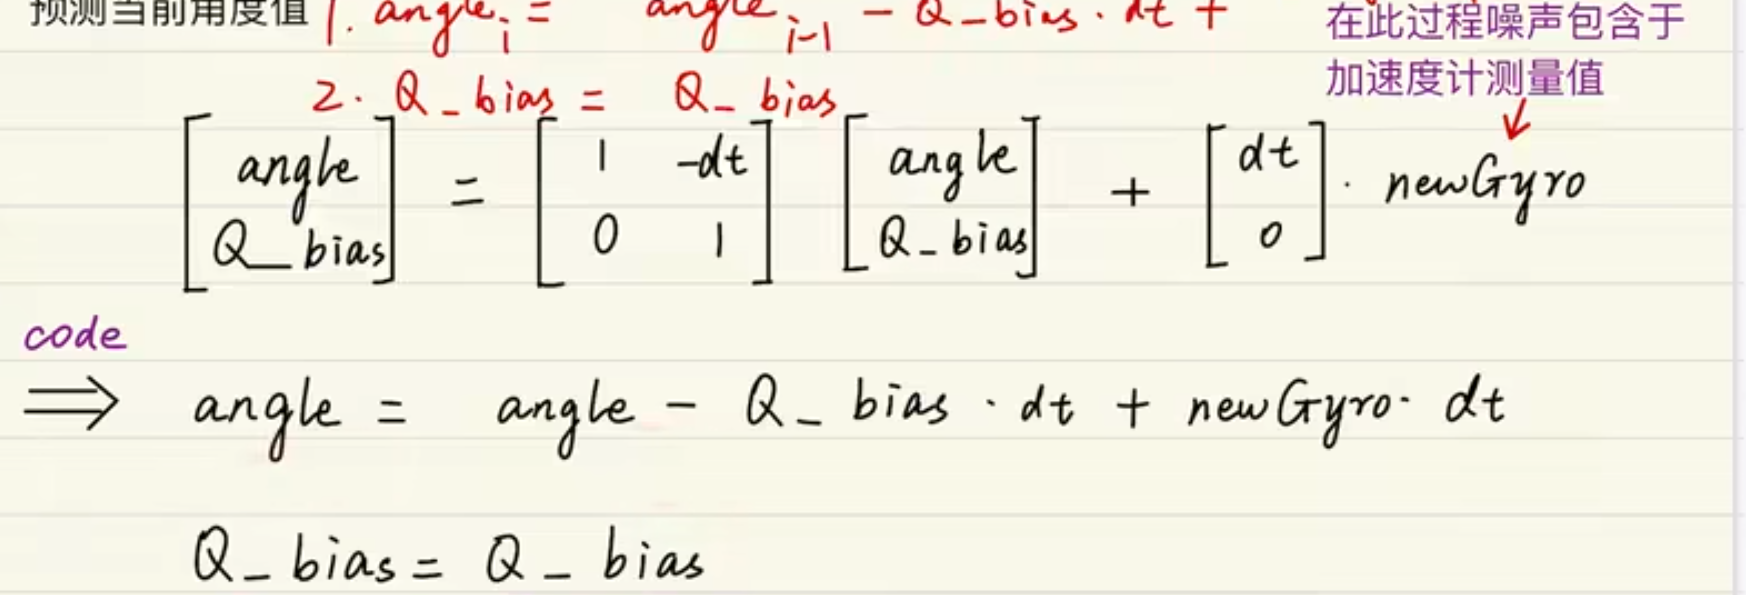 预测当前角度值 1. angle_i = angle_{i-1} - Q_bias · dt +
在此过程噪声包含于
加速度计测量值
2. Q_bias = Q_bias
[angle Q_bias] = [1 -dt 0 1] [angle Q_bias] + [dt 0] · newGyro
code
⇒ angle = angle - Q_bias · dt + newGyro · dt
Q_bias = Q_bias